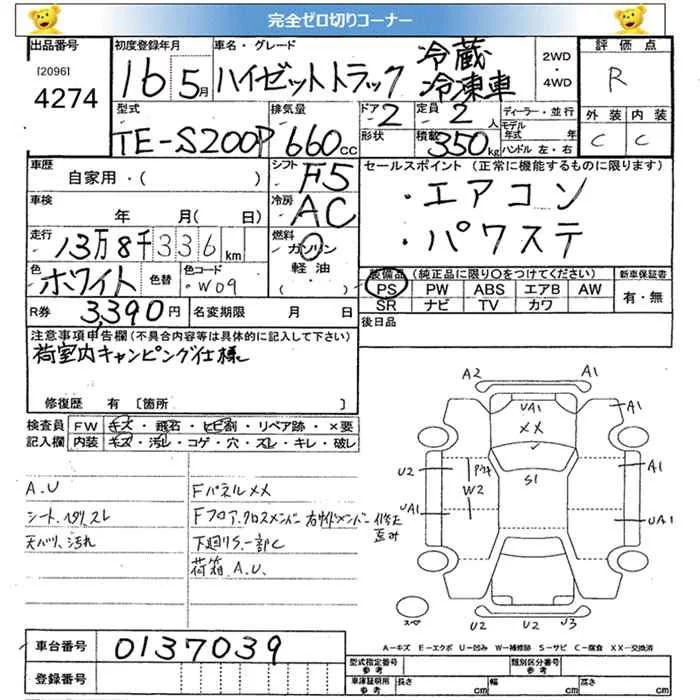 完全ゼロ切りコーナー
出品番号
[2096]
4274
初度登録年月
16 5月
車名・グレード
ハイゼットトラック 冷蔵
冷凍車
2WD
4WD
評価点
R
外装 内装
C C
型式
TE-S200P
排気量
660cc
ドア
2
形状
定員
2人
積載
350kg
ディーラー・並行
モデル
年式 年
ハンドル 左・右
車歴
自家用・( )
シフト
F5
車検
年 月( 日)
冷房
AC
走行
13万8千336km
燃料
ガソリン
軽油
・( )
色
ホワイト
色替
色コード
・W09
R券
3,390円
名変期限 月 日
セールスポイント(正常に機能するものに限ります)
・エアコン
・パワステ
装備品(純正品に限り○をつけてください)
PS PW ABS エアB AW
SR ナビ TV カワ
新車保証書
有・無
後日品
注意事項申告欄(不具合内容等は具体的に記入して下さい)
荷室内キャンピング仕様
修復歴 有 [箇所 ]
検査員
記入欄
FW キズ・飛石・ヒビ割・リペア跡・×要
内装 キズ・汚レ・コゲ・穴・スレ・キレ・破レ
A.U
シート.ヘタリ.スレ
天バリ、汚れ
FパネルXX
Fフロア.クロスメンバー 右サイドメンバー 修正
歪み
下廻りS.一部C
荷箱 A.U.
A2 A1
UA1
XX
A1
U2
W2
S1
A1
UA1
UA1
スペ
U2 U2 U3
A-キズ E-エクボ U-凹み W-補修跡 S-サビ C-腐食 XX-交換済
車台番号
0137039
登録番号
型式指定番号
参考
類別区分番号
参考
車庫証明用
参考
長さ cm
幅 cm
高さ cm